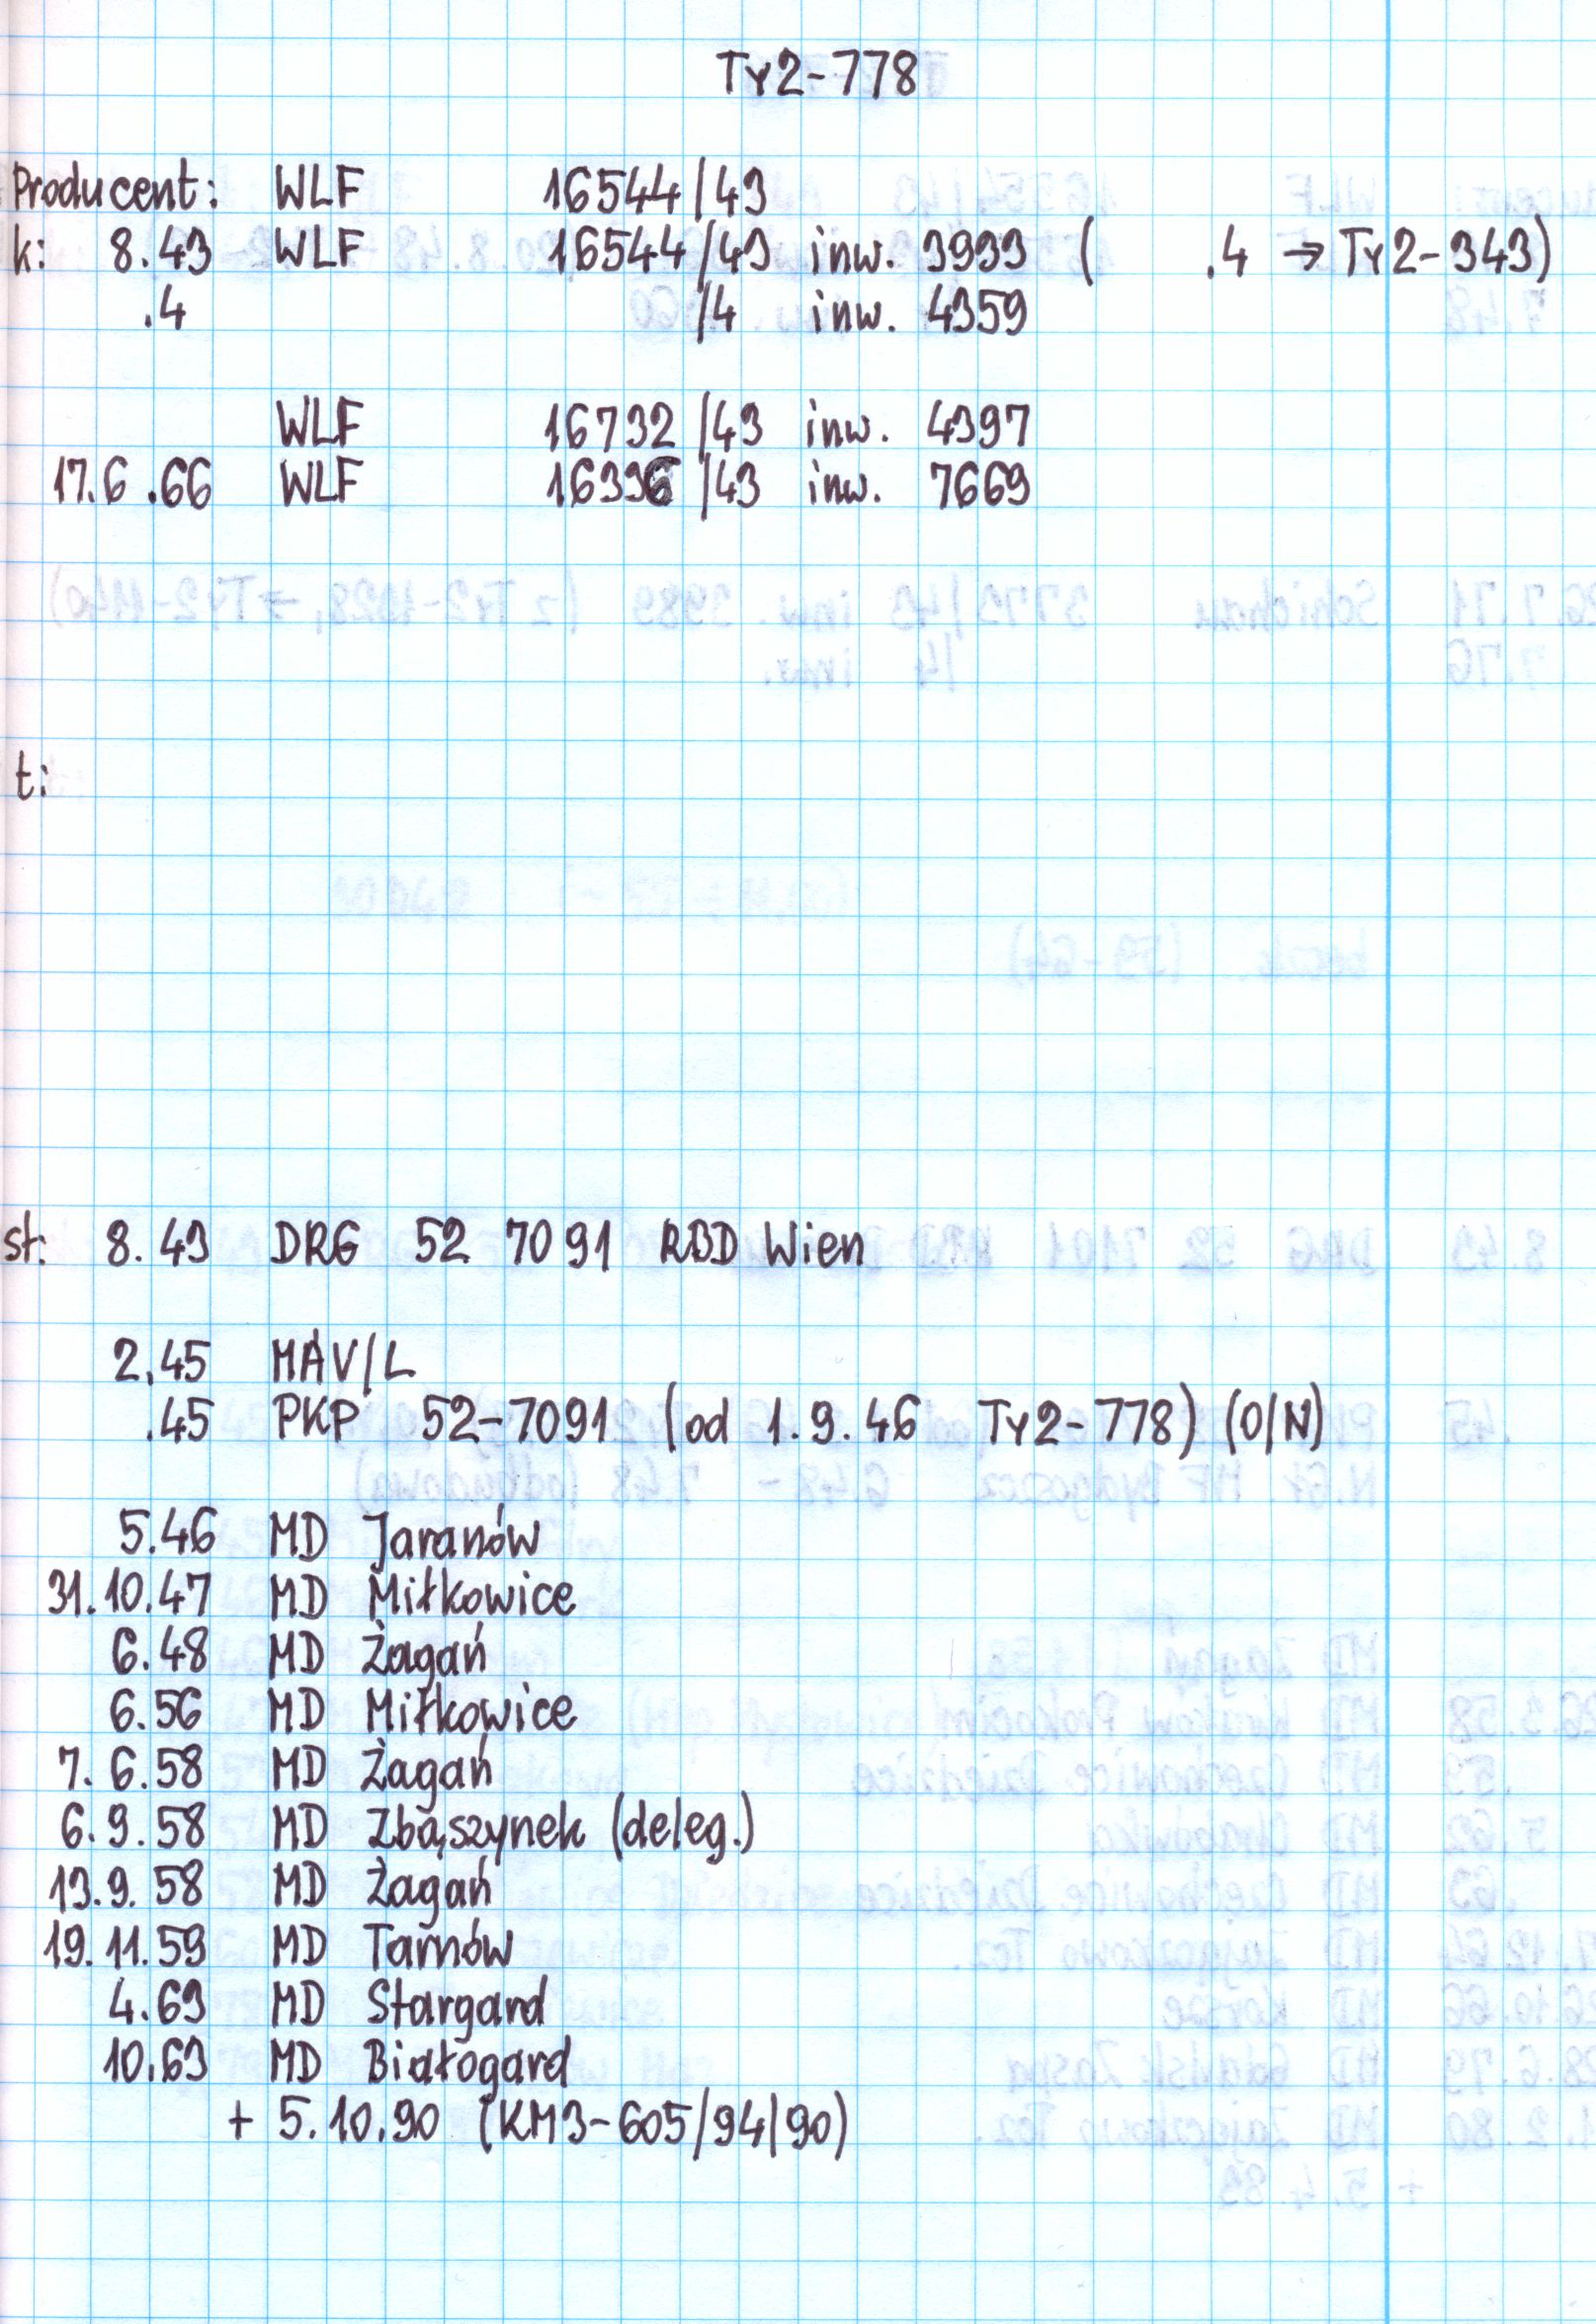 Ty2-778
Producent: WLF 16544/43
k: 8.43 WLF 16544/43 inw. 3933 ( .4 → Ty2-343)
.4 /4 inw. 4359
WLF 16732/43 inw. 4397
17.6.66 WLF 16396/43 inw. 7669
t:
st: 8.43 DRG 52 7091 RBD Wien
2.45 MÁV/L
.45 PKP 52-7091 (od 1.9.46 Ty2-778) (O/N)
5.46 MD Jaranów
31.10.47 MD Miłkowice
6.48 MD Żagań
6.56 MD Miłkowice
7.6.58 MD Żagań
6.9.58 MD Zbąszynek (deleg.)
13.9.58 MD Żagań
19.11.59 MD Tarnów
4.63 MD Stargard
10.63 MD Białogard
+ 5.10.90 (KM3-605/94/90)